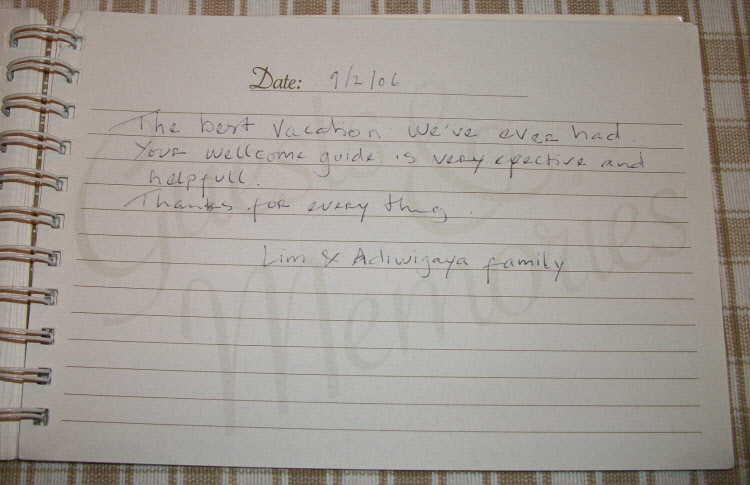 Date: 9/2/06
The best vacation we've ever had.
Your wellcome guide is very efective and
helpfull.
Thanks for every thing.
Lim & Adiwijaya family
Guests &
Memories